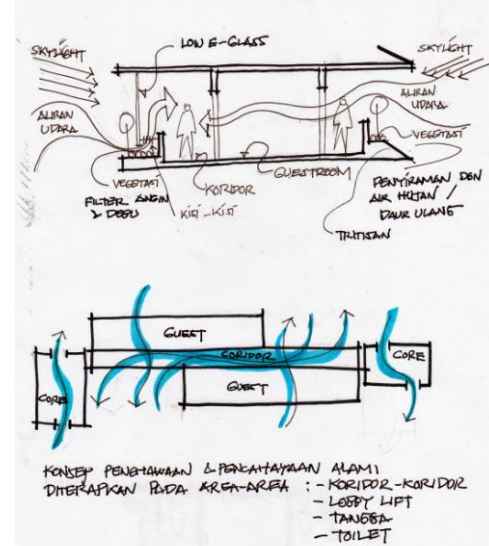 LOW E-GLASS
SKYLIGHT
SKYLIGHT
ALIRAN
UDARA
ALIRAN
UDARA
VEGETASI
VEGETASI
FILTER ANGIN
& DEBU
KISI-KISI
KORIDOR
GUESTROOM
PENYIRAMAN DGN
AIR HUJAN /
DAUR ULANG
TRITISAN
GUEST
CORIDOR
CORE
CORE
GUEST
KONSEP PENGHAWAAN & PENCAHAYAAN ALAMI
DITERAPKAN PADA AREA-AREA : - KORIDOR-KORIDOR
- LOBBY LIFT
- TANGGA
- TOILET